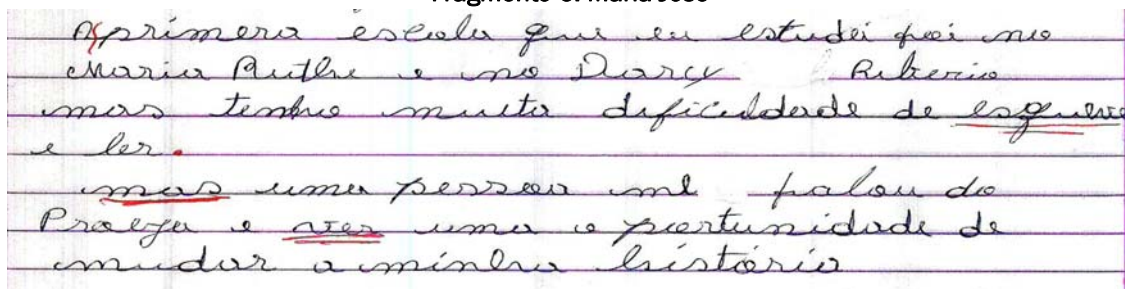 Aprimera escola que eu estudei foi no
Maria Ruthe e no Darcy Riberio
mas tenho muita dificuldade de esquever
e ler.
mas uma pessoa me falou do
Proeja e ater uma o portunidade de
mudar a minha história